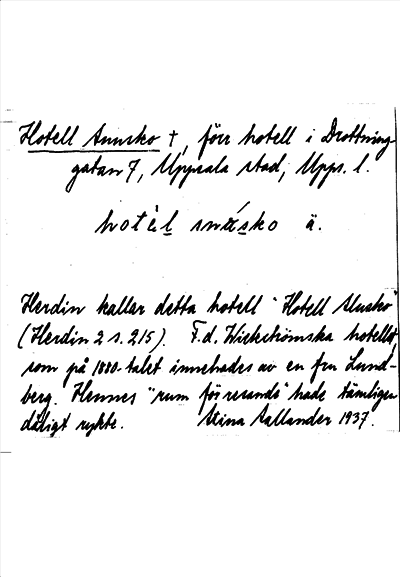 Hotell Snusko †, förr hotell i Drottning-
gatan 7, Uppsala stad, Upps. l.
hotèl snúsko ä.
Herdin kallar detta hotell "Hotell Slusko"
(Herdin 2 s. 215). F.d. Wickströmska hotellet,
som på 1880-talet innehades av en fru Lund-
berg. Hennes "rum för resande" hade tämligen
dåligt rykte. Stina Sallander 1937.